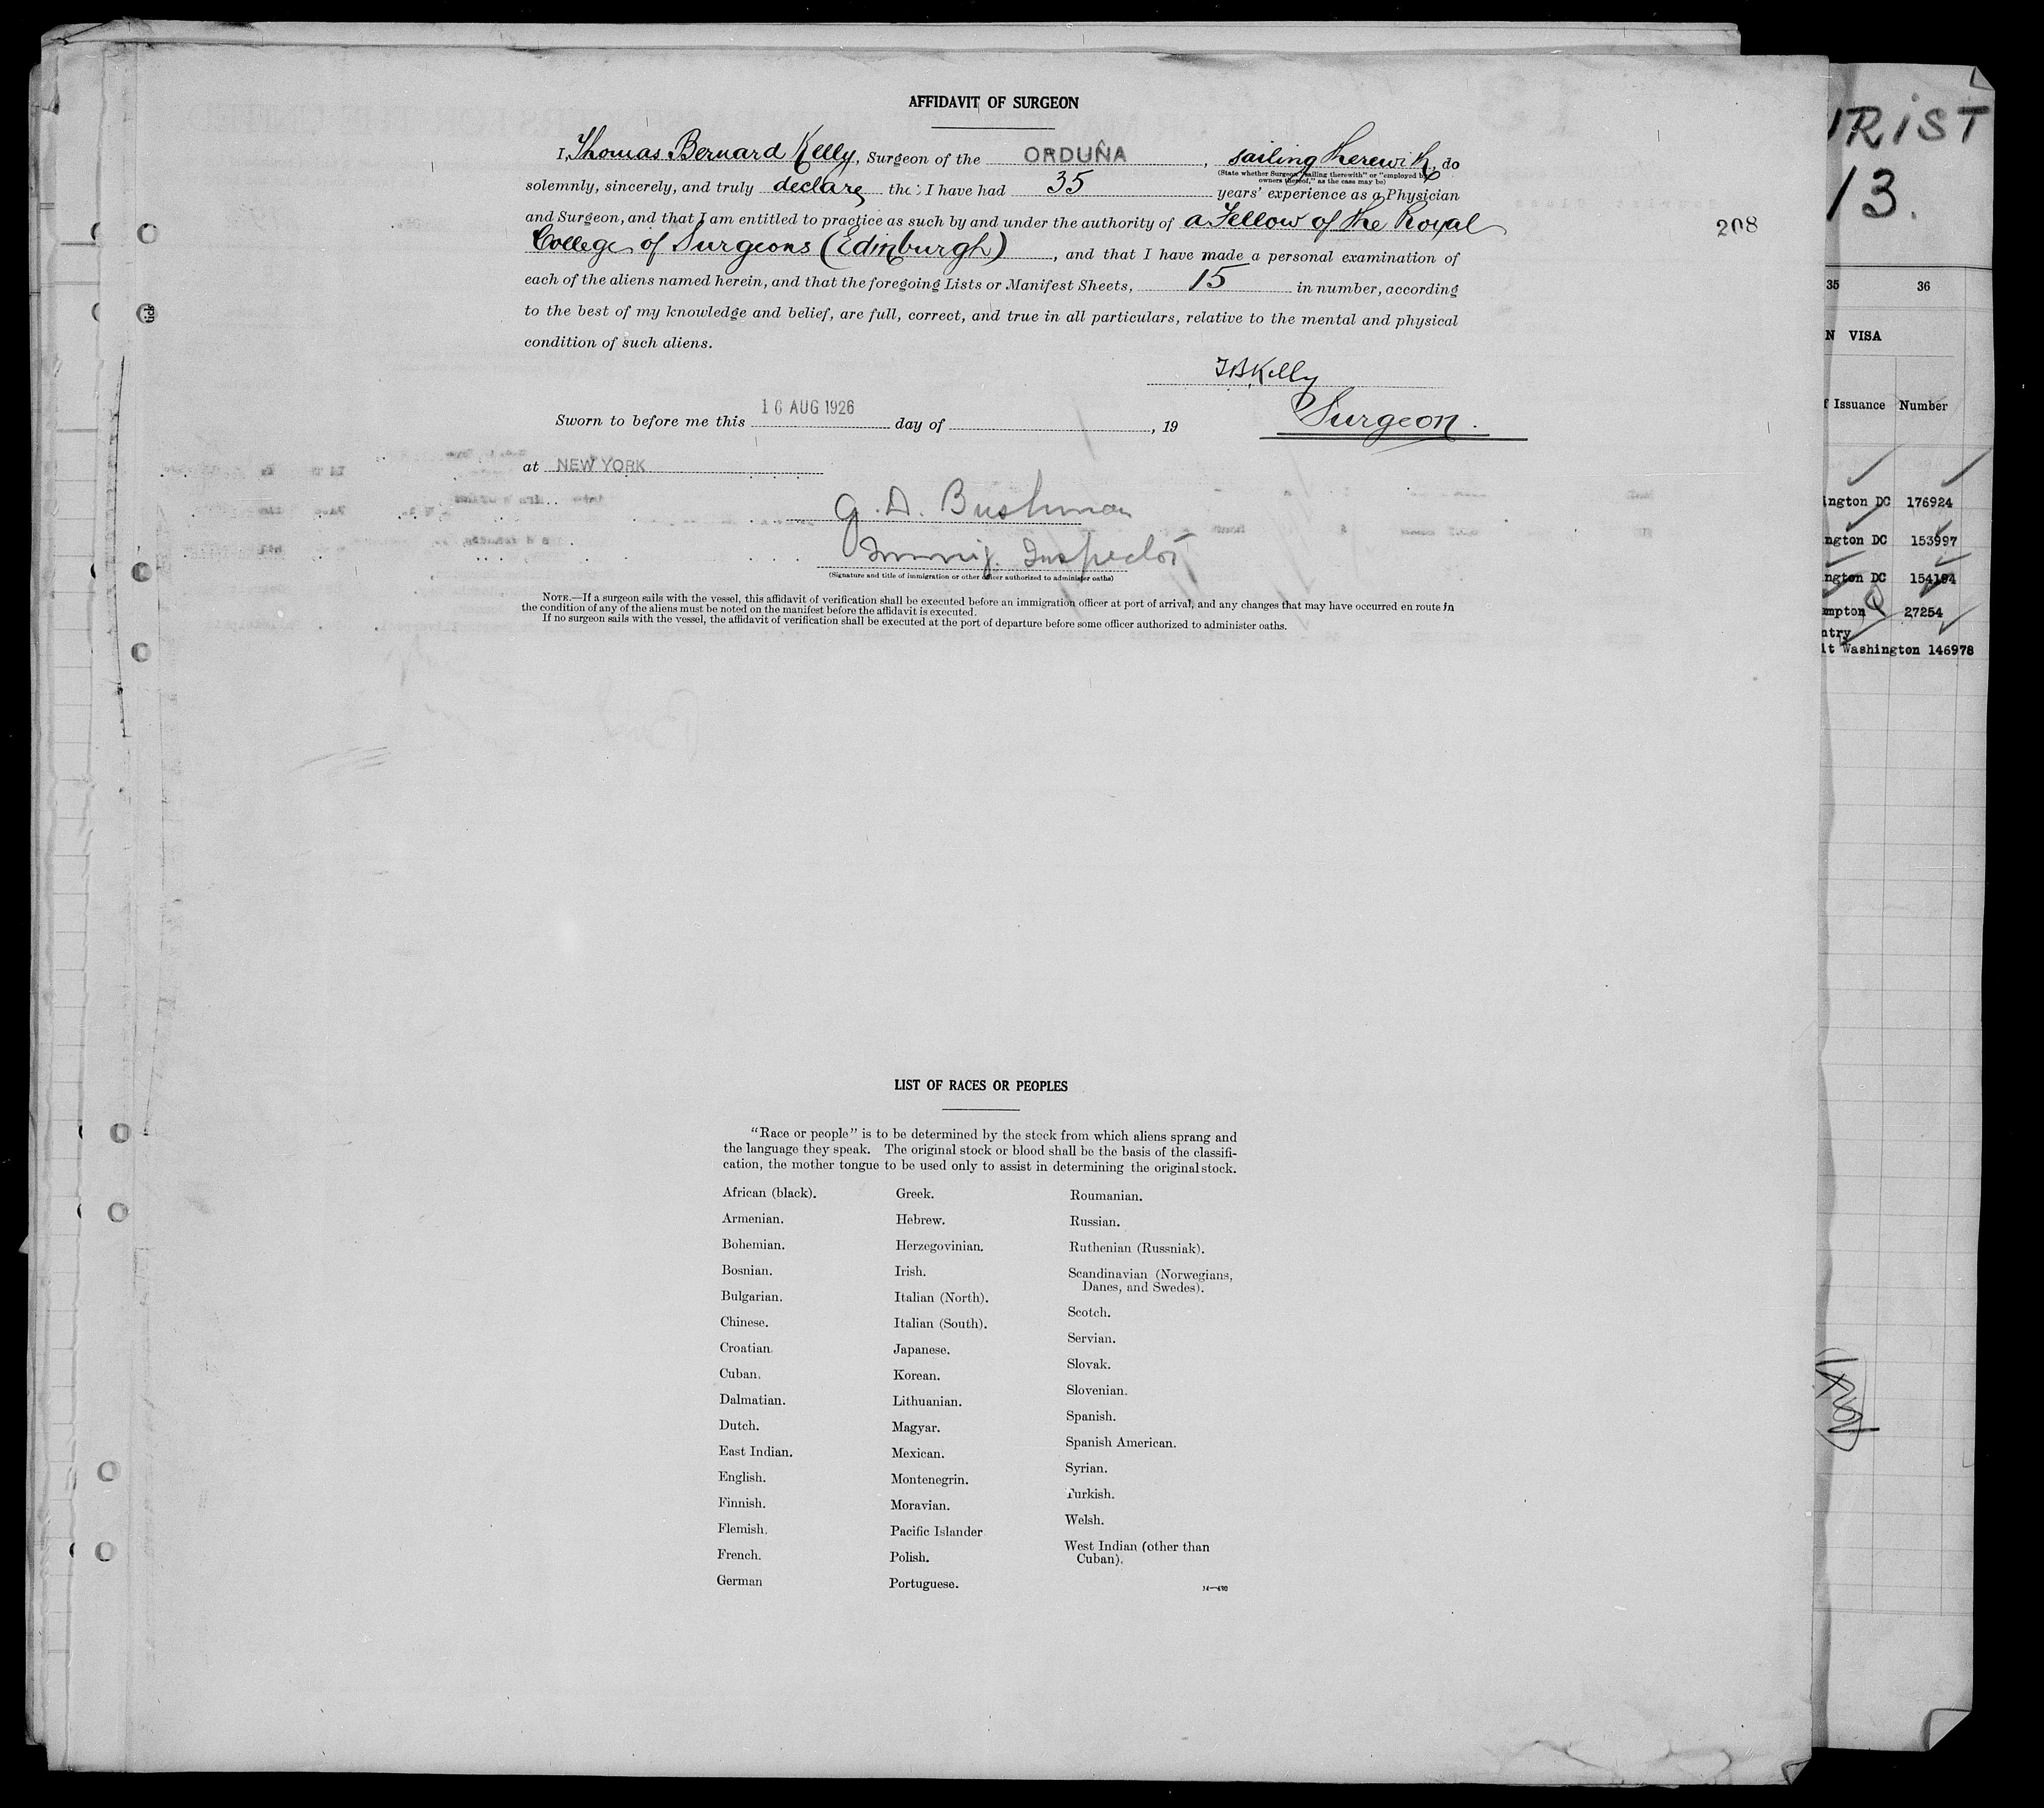 AFFIDAVIT OF SURGEON
I, Thomas Bernard Kelly, Surgeon of the ORDUÑA, sailing therewith, do
(State whether Surgeon "sailing therewith" or "employed by owners thereof," as the case may be)
solemnly, sincerely, and truly declare the: I have had 35 years' experience as a Physician
and Surgeon, and that I am entitled to practice as such by and under the authority of a Fellow of the Royal
College of Surgeons (Edinburgh), and that I have made a personal examination of
each of the aliens named herein, and that the foregoing Lists or Manifest Sheets, 15 in number, according
to the best of my knowledge and belief, are full, correct, and true in all particulars, relative to the mental and physical
condition of such aliens.
TBKelly
Surgeon.
Sworn to before me this 16 AUG 1926 day of , 19
at NEW YORK
G. D. Bushman
Immig. Inspector
(Signature and title of immigration or other officer authorized to administer oaths)
NOTE.—If a surgeon sails with the vessel, this affidavit of verification shall be executed before an immigration officer at port of arrival, and any changes that may have occurred en route in
the condition of any of the aliens must be noted on the manifest before the affidavit is executed.
If no surgeon sails with the vessel, the affidavit of verification shall be executed at the port of departure before some officer authorized to administer oaths.
208
LIST OF RACES OR PEOPLES
"Race or people" is to be determined by the stock from which aliens sprang and
the language they speak. The original stock or blood shall be the basis of the classifi-
cation, the mother tongue to be used only to assist in determining the original stock.
African (black).
Armenian.
Bohemian.
Bosnian.
Bulgarian.
Chinese.
Croatian.
Cuban.
Dalmatian.
Dutch.
East Indian.
English.
Finnish.
Flemish.
French.
German
Greek.
Hebrew.
Herzegovinian.
Irish.
Italian (North).
Italian (South).
Japanese.
Korean.
Lithuanian.
Magyar.
Mexican.
Montenegrin.
Moravian.
Pacific Islander
Polish.
Portuguese.
Roumanian.
Russian.
Ruthenian (Russniak).
Scandinavian (Norwegians,
Danes, and Swedes).
Scotch.
Servian.
Slovak.
Slovenian.
Spanish.
Spanish American.
Syrian.
Turkish.
Welsh.
West Indian (other than
Cuban).
URIST
13.
35 36
N VISA
f Issuance Number
ington DC 176924
ngton DC 153997
ngton DC 154194
ampton 27254
ntry
it Washington 146978